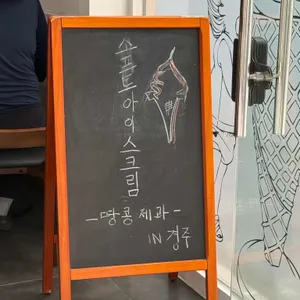 소프트아이스크림
- 땅콩 제과 -
IN 경주